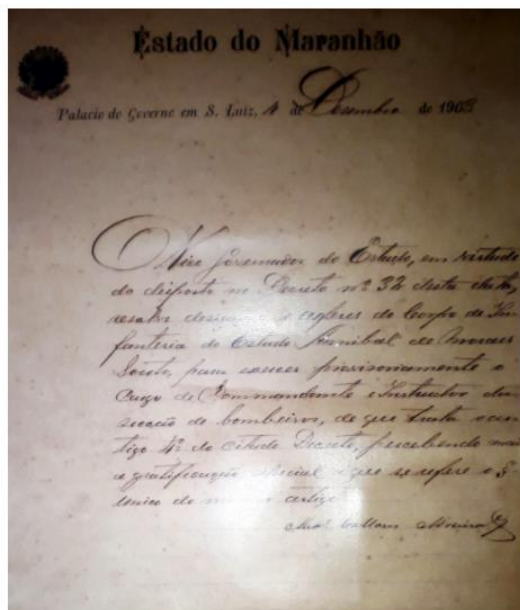 Estado do Maranhão
Palacio do Governo em S. Luiz, 4 de Dezembro de 1903
O Vice Governador do Estado, em virtude
do disposto no Decreto nº 32 desta data,
resolve designar o alferes do Corpo de In-
fanteria do Estado Annibal de Moraes
Souto, para exercer provisoriamente o
Cargo de Commandante e Instructor da
secção de bombeiros, de que trata o ar-
tigo 4º do citado Decreto, percebendo
a gratificação especial a que se refere o §
unico do mesmo artigo